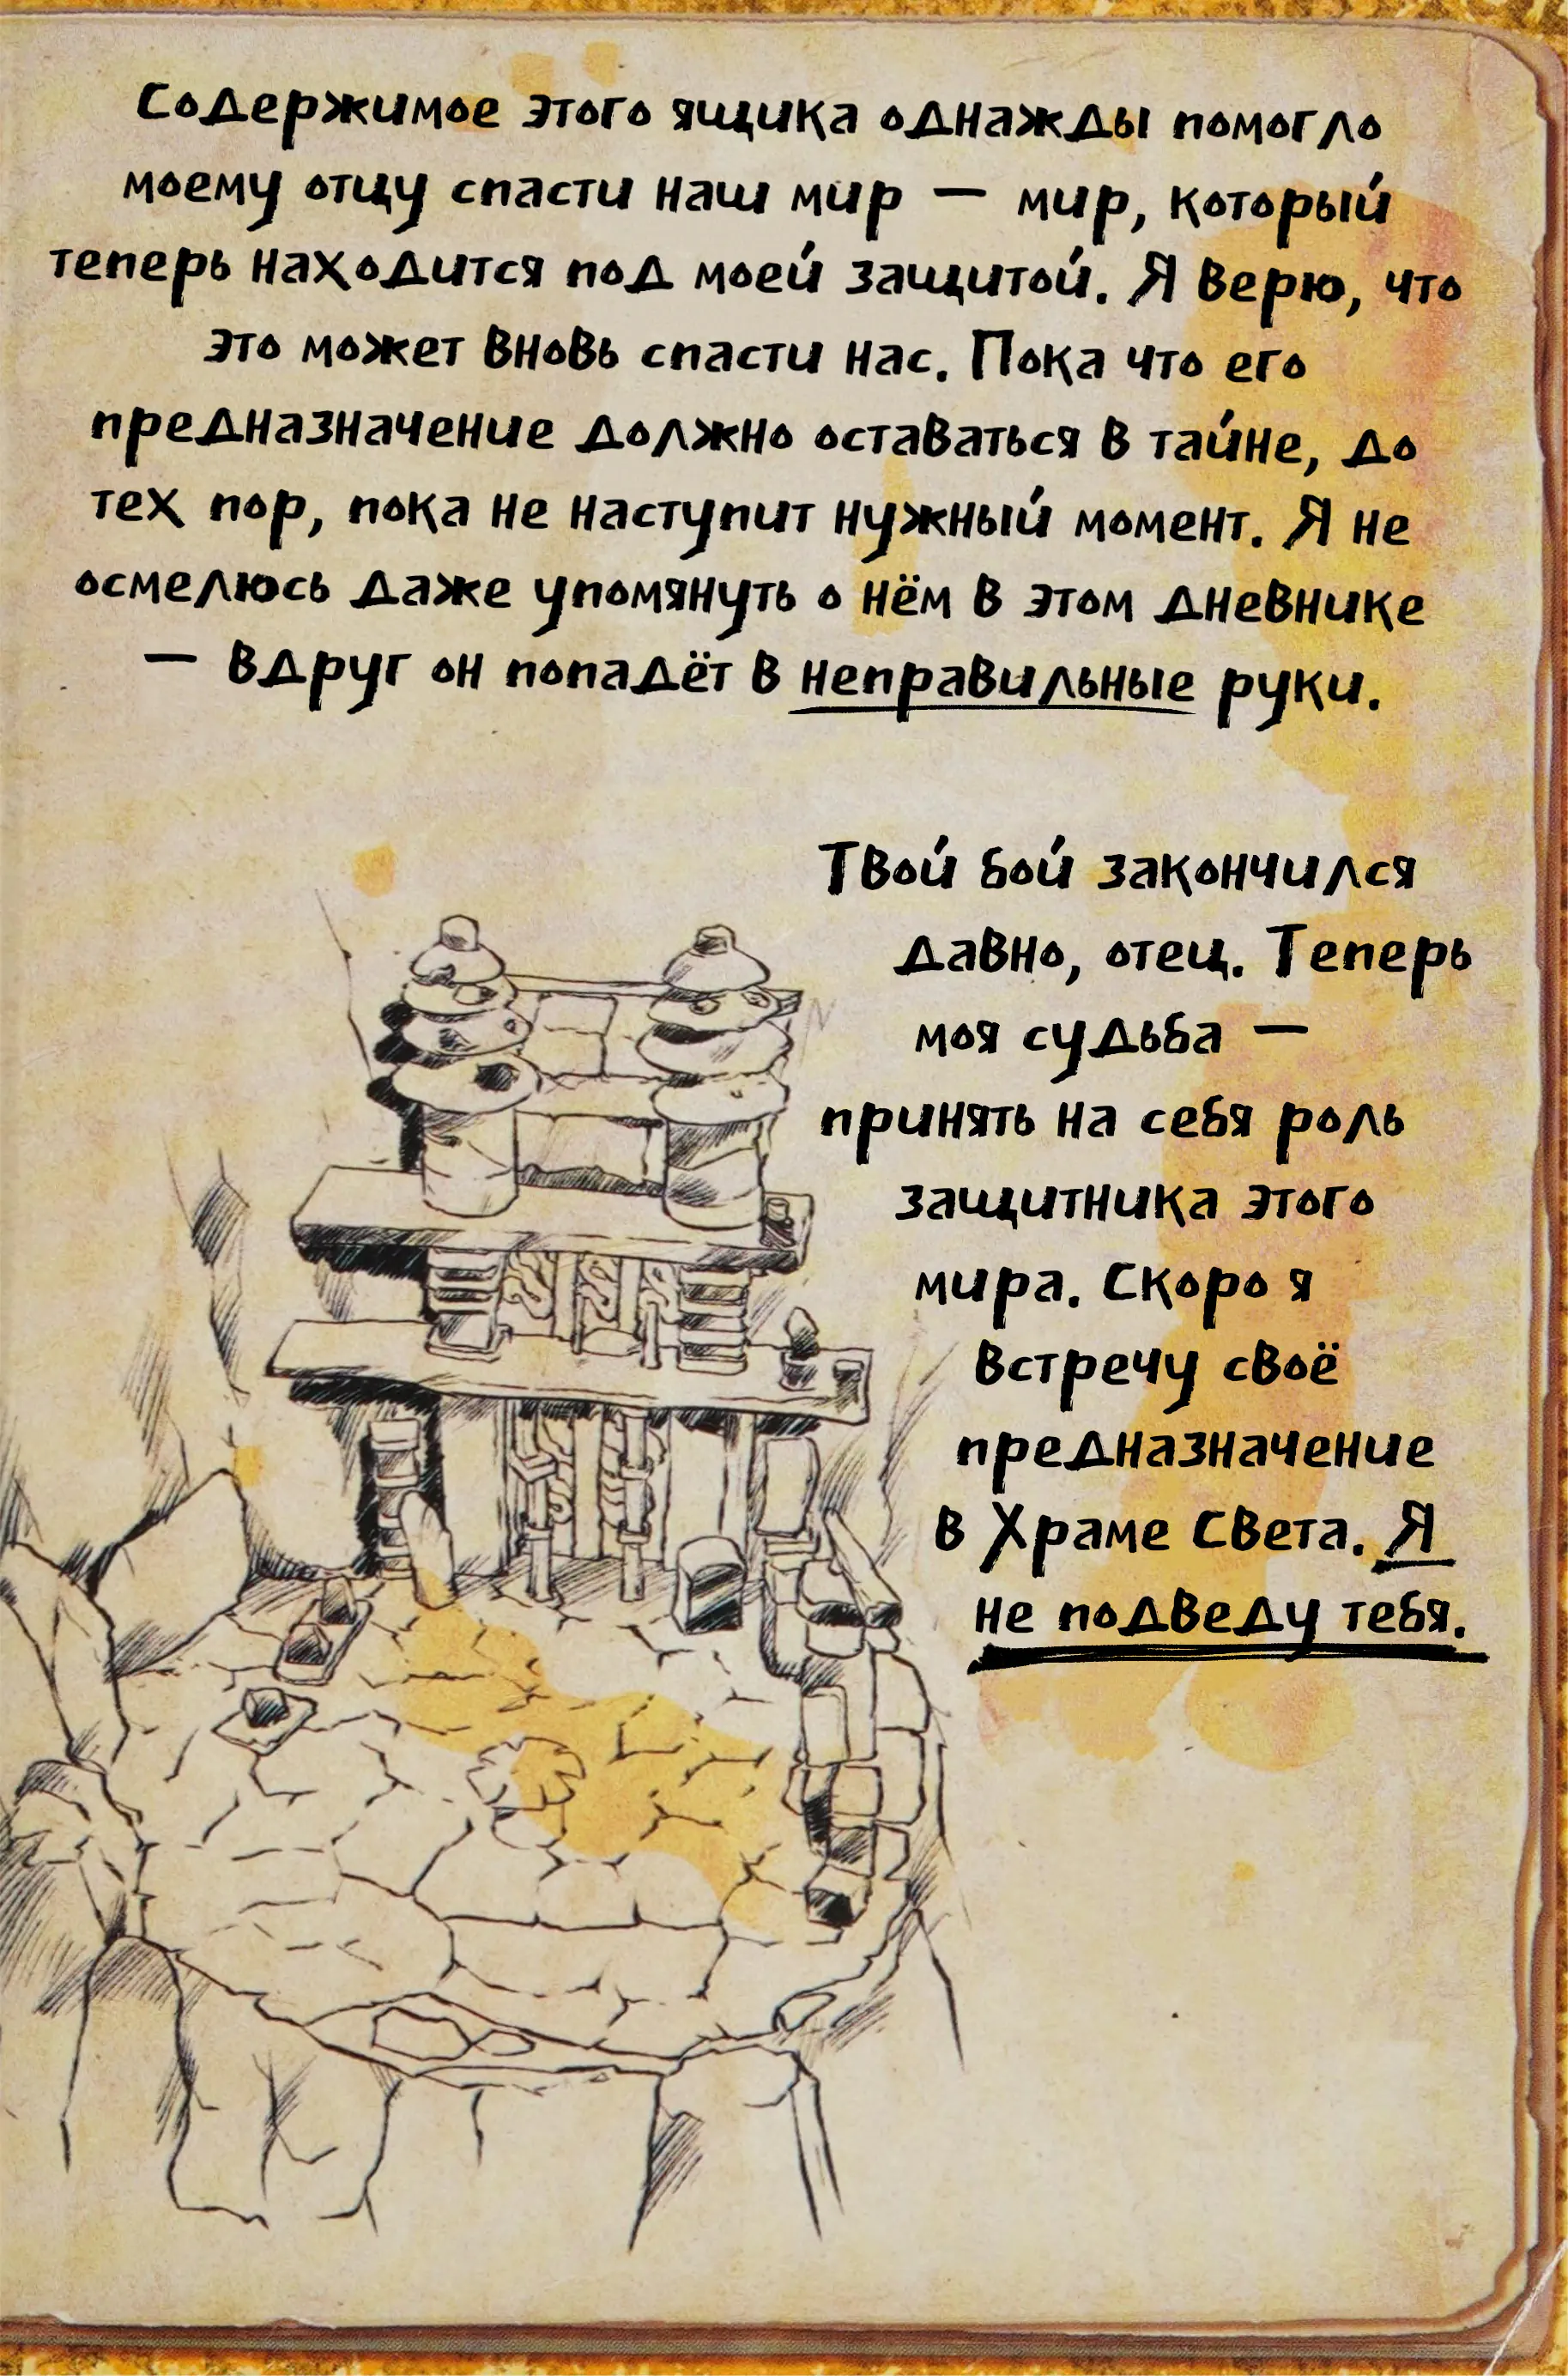 Содержимое этого ящика однажды помогло
моему отцу спасти наш мир — мир, который
теперь находится под моей защитой. Я верю, что
это может вновь спасти нас. Пока что его
предназначение должно оставаться в тайне, до
тех пор, пока не наступит нужный момент. Я не
осмелюсь даже упомянуть о нём в этом дневнике
— вдруг он попадёт в неправильные руки.
Твой бой закончился
давно, отец. Теперь
моя судьба —
принять на себя роль
защитника этого
мира. Скоро я
встречу своё
предназначение
в Храме Света. Я
не подведу тебя.